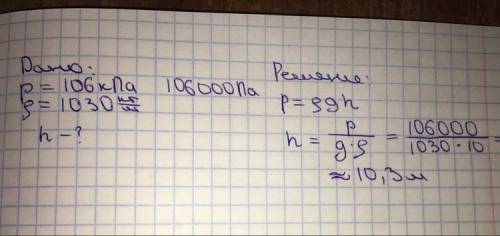 Дано:
p = 106кПа 106000Па
ρ = 1030 кг/м³
h - ?
Решение:
p = ρgh
h = p/g·ρ = 106000/1030·10 =
≈ 10,3м